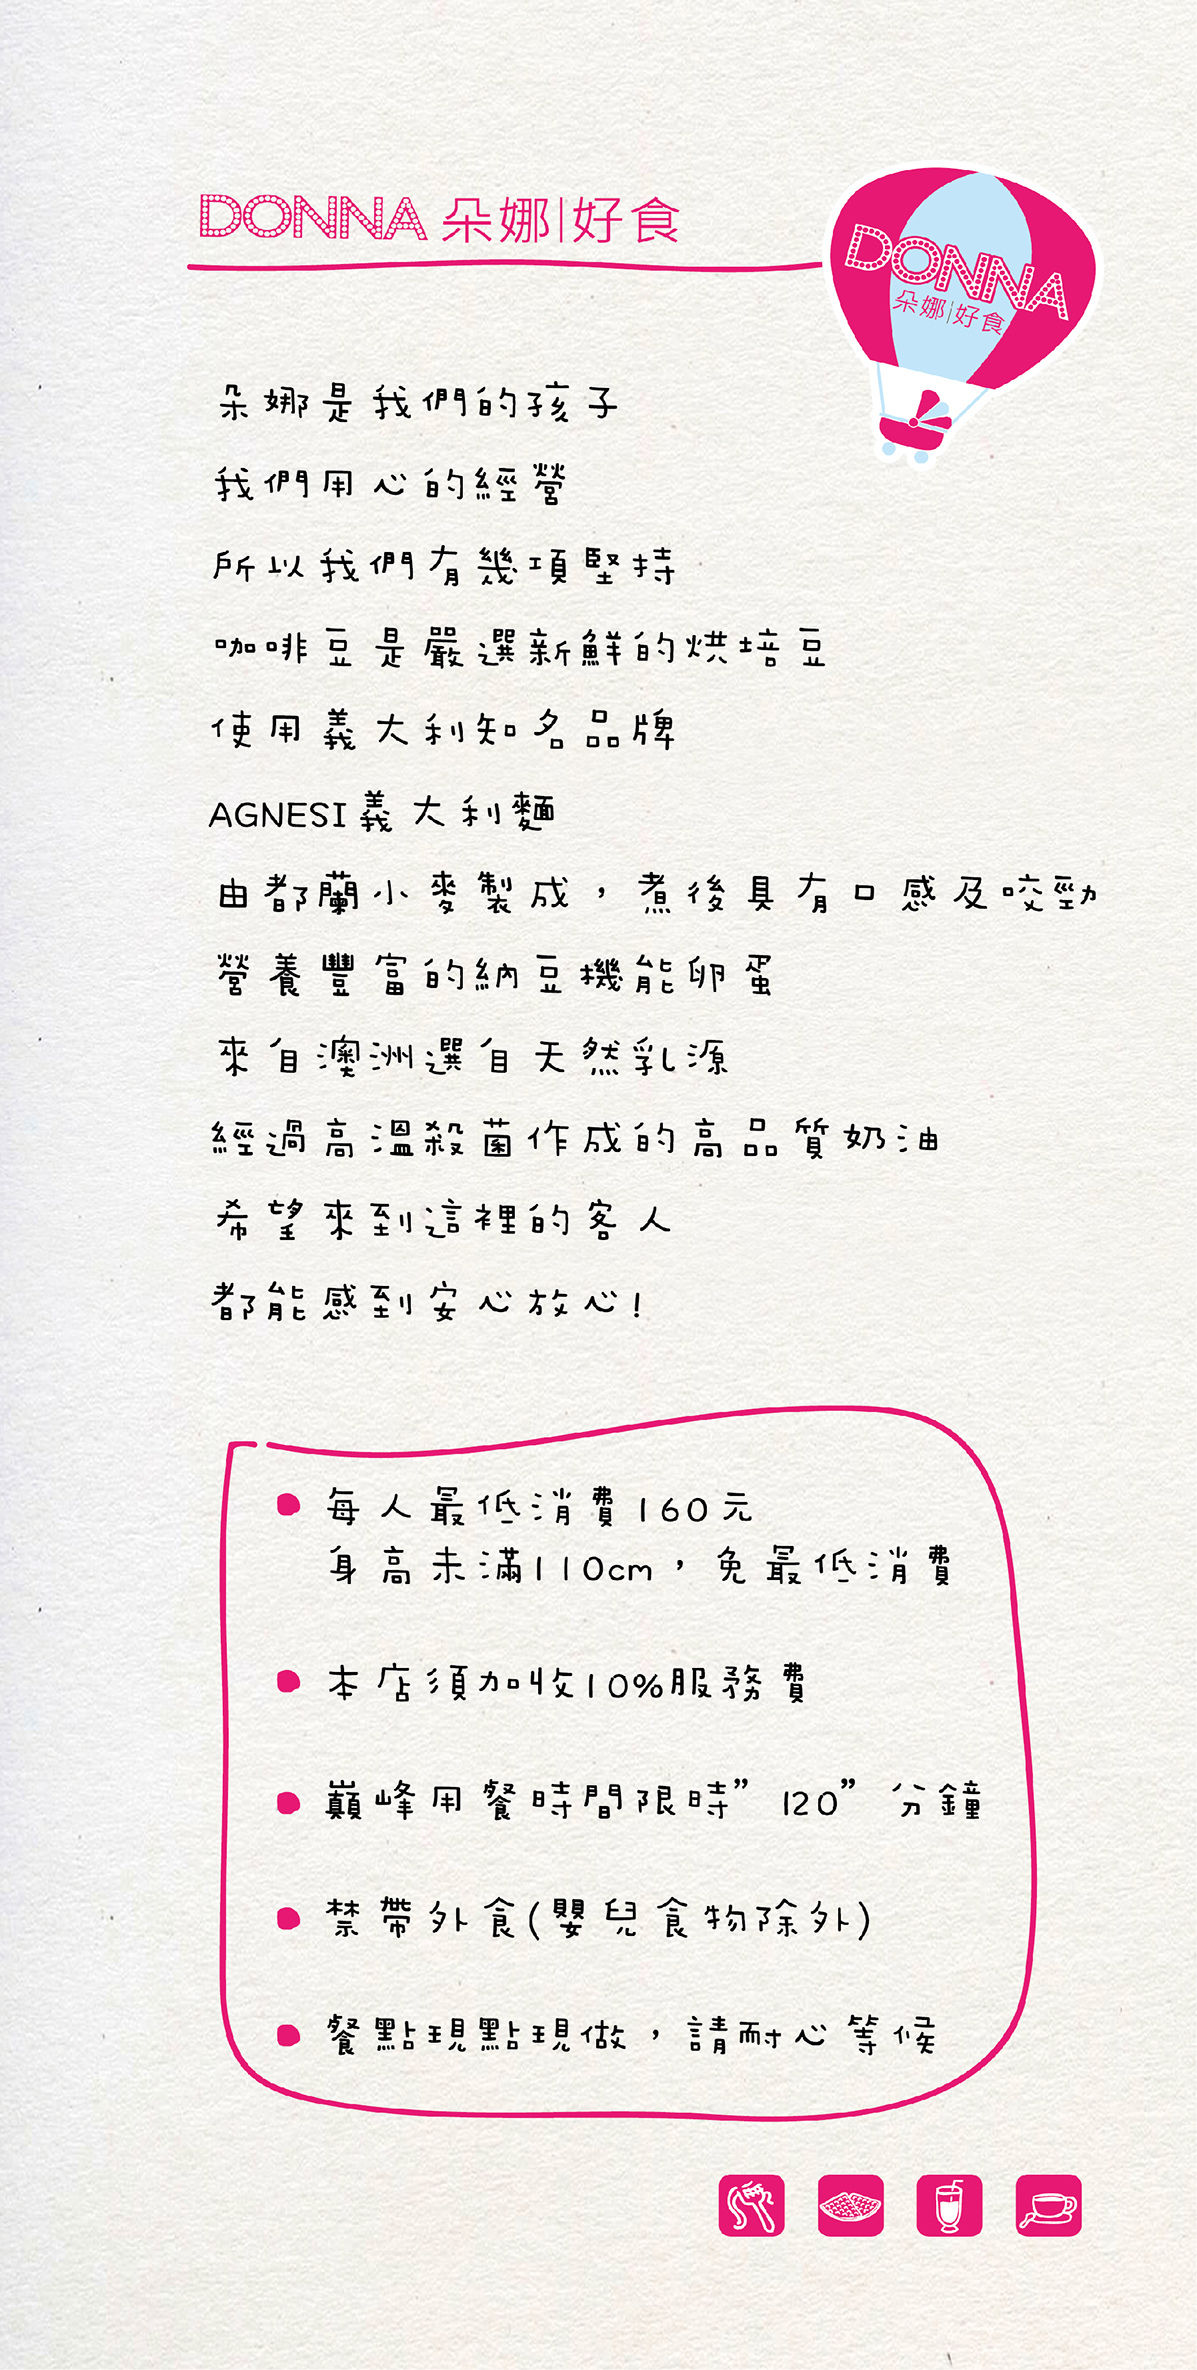 DONNA 朵娜|好食
DONNA
朵娜|好食
朵娜是我們的孩子
我們用心的經營
所以我們有幾項堅持
咖啡豆是嚴選新鮮的烘培豆
使用義大利知名品牌
AGNESI義大利麵
由都蘭小麥製成，煮後具有口感及咬勁
營養豐富的納豆機能卵蛋
來自澳洲選自天然乳源
經過高溫殺菌作成的高品質奶油
希望來到這裡的客人
都能感到安心放心!
● 每人最低消費160元
身高未滿110cm，免最低消費
● 本店須加收10%服務費
● 巔峰用餐時間限時”120”分鐘
● 禁帶外食(嬰兒食物除外)
● 餐點現點現做，請耐心等候